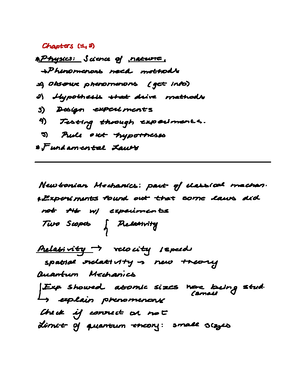 Chapters (1,2)
Physics: Science of nature.
→ Phenomenons need methods
1) Observe phenomenons (get info)
2) Hypothesis that drive methods
3) Design experiments
4) Testing through experiments.
5) Rule out hypotheses
Fundamental Laws
Newtonian Mechanics: part of classical mechan.
Experiments found out that some laws did
not fit w/ experiments
Two Scopes { Relativity
Relativity → velocity / speed
spatial relativity → new theory
Quantum Mechanics
Exp showed atomic sizes were being stud
(small)
→ explain phenomenons
Check if correct or not
Limit of quantum theory: small sizes